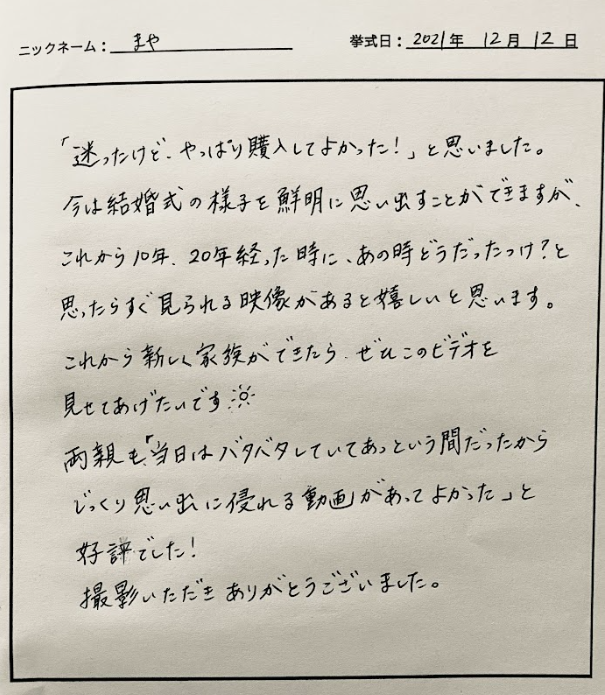 ニックネーム： まや
挙式日： 2021年 12月 12日
「迷ったけど、やっぱり購入してよかった！」と思いました。
今は結婚式の様子を鮮明に思い出すことができますが、
これから10年、20年経った時に、あの時どうだったっけ？と
思ったらすぐ見られる映像があると嬉しいと思います。
これから新しく家族ができたら、ぜひこのビデオを
見せてあげたいです
両親も「当日はバタバタしていてあっという間だったから
じっくり思い出に侵れる動画があってよかった」と
好評でした！
撮影いただきありがとうございました。